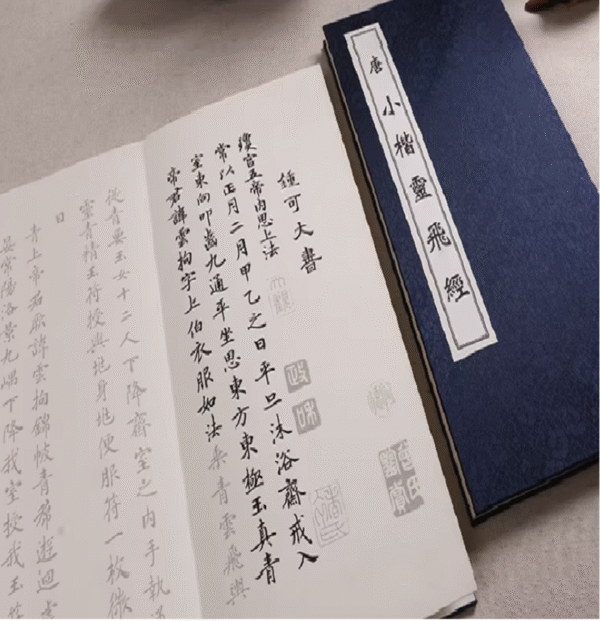 唐 小楷靈飛經
鍾可大書
瓊宮五帝內思上法
常以正月二月甲乙之日平旦沐浴齋戒入
室東向叩齒九通平坐思東方東極玉真青
帝君諱雲拘字上伯衣服如法乘青雲飛輿
從青要玉女十二人下降齋室之內手執
靈青精玉符授與地身地便服符一枚微
日
青上帝君厥諱雲拘錦帔青帬遊迴
晏常陽洛景九嵎下降我室授我玉符